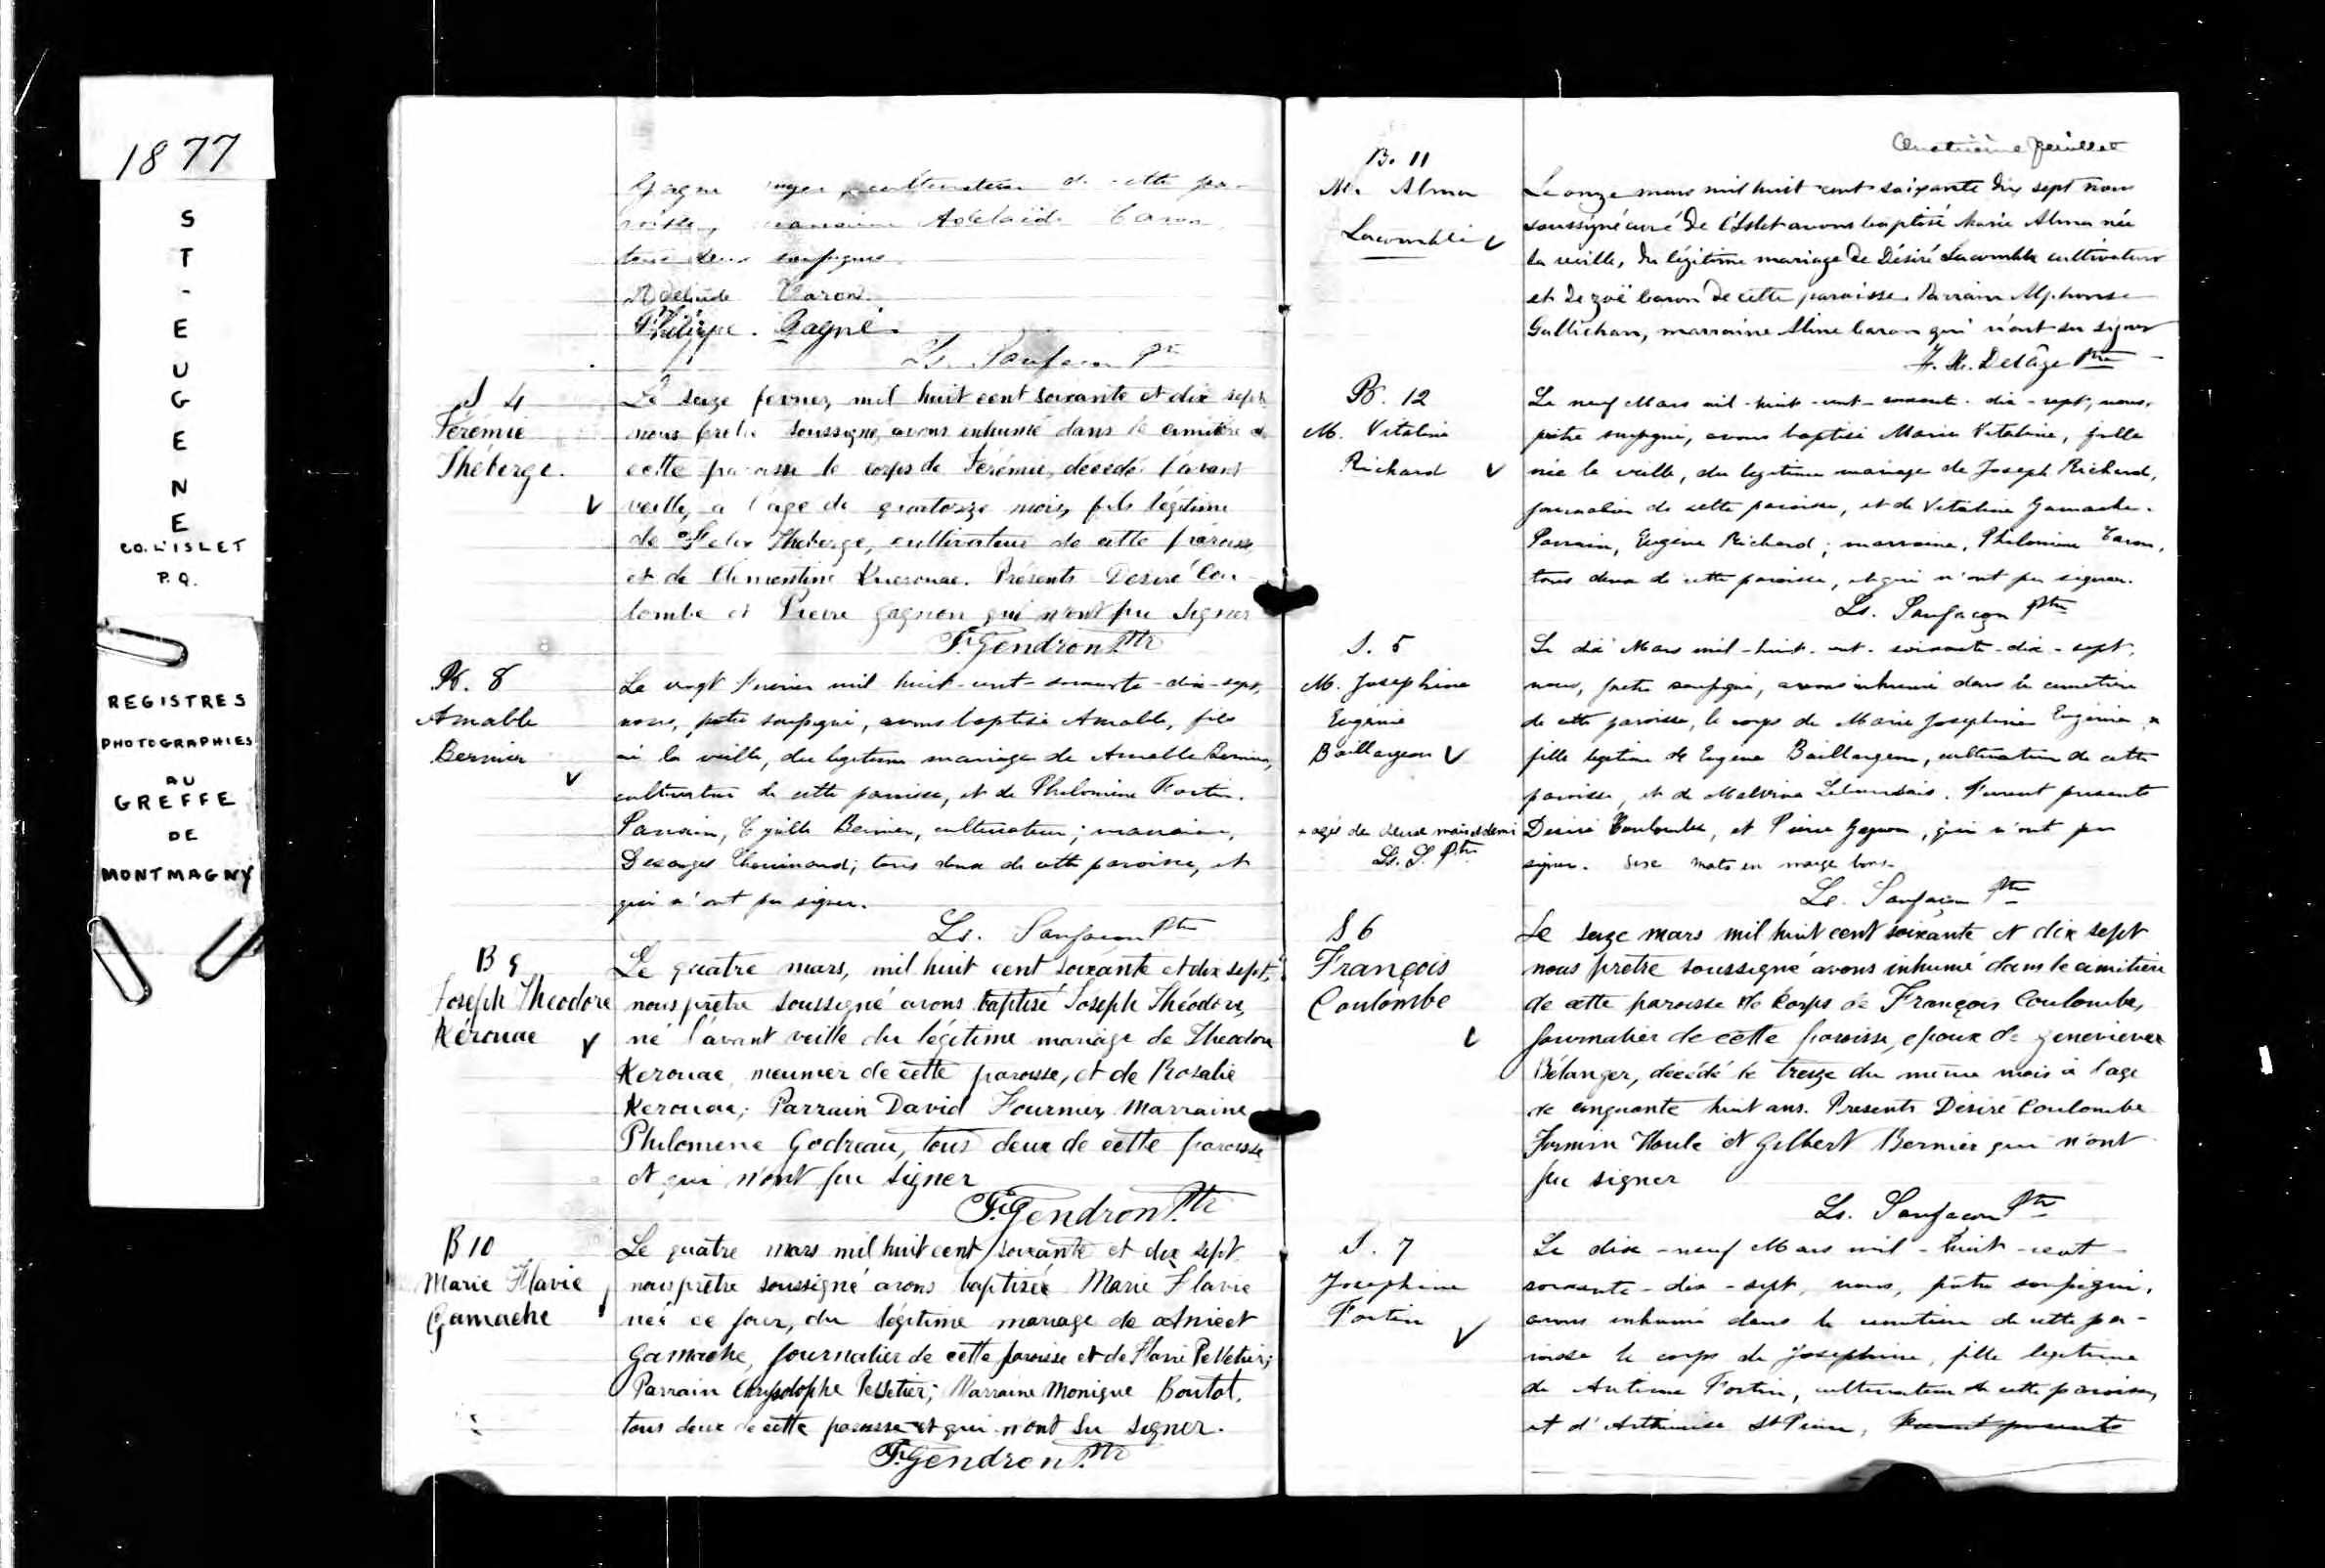 1877
ST-EUGENE
CO. L'ISLET
P.Q.
REGISTRES
PHOTOGRAPHIES
AU
GREFFE
DE
MONTMAGNY
cultivateur de cette pa-
roisse, marraine Adelaïde Caron
tous deux soussignés
Adelaide Caron
Philippe Gagné
Ls. Sanfaçon Ptre
S 4
Jérémie
Théberge.
Le seize fevrier, mil huit cent soixante et dix sept
nous pretre soussigné, avons inhumé dans le cimitière de
cette paroisse le corps de Jérémie, décédé l'avant
veille, a l'age de quatorze mois, fils légitime
de Felix Theberge, cultivateur de cette paroisse
et de Clementine Kuerouac. Présents Desiré Cou-
lombe et Pierre Gagnon qui n'ont pu signer
F. Gendron Ptr
B. 8
Amable
Bernier
Le vingt Fevrier mil-huit-cent-soixante-dix-sept,
nous, prêtre soussigné, avons baptisé Amable, fils
né la veille, du legitime mariage de Amable Bernier,
cultivateur de cette paroisse, et de Philomène Fortin.
Parrain, Cyrille Bernier, cultivateur; marraine,
Desanges Chouinard; tous deux de cette paroisse, et
qui n'ont pu signer.
Ls. Sanfacon Ptre
B 9
Joseph Theodore
Kérouac
Le quatre mars, mil huit cent soixante et dix sept,
nous pretre soussigné avons baptisé Joseph Théodore,
né l'avant veille du légitime mariage de Theodore
Kerouac, meunier de cette paroisse, et de Rosalie
Kerouac; Parrain David Fournier, Marraine
Philomene Godreau, tous deux de cette paroisse
et qui n'ont pu signer
F. Gendron Ptr
B 10
Marie Flavie
Gamache
Le quatre mars mil huit cent soixante et dix sept
nous prêtre soussigné avons baptisée Marie Flavie
née ce jour, du légitime mariage de Anicet
Gamache, journalier de cette paroisse et de Flavie Pelletier;
Parrain Chrysolophe Pelletier; Marraine Monique Boutot,
tous deux de cette paroisse et qui n'ont su signer.
F. Gendron Ptr
Quatrième feuillet
B. 11
M. Alma
Lacomblé
Le onze mars mil huit cent soixante dix sept nous
soussigné curé de l'Islet avons baptisé Marie Alma née
la veille, du légitime mariage de Désiré Lacomblé cultivateur
et de Zoé Caron de cette paroisse. Parrain Alphonse
Gallichan, marraine Aline Caron qui n'ont su signer
F. X. Delâge Ptre
B. 12
M. Vitaline
Richard
Le neuf Mars mil-huit-cent-soixante-dix-sept, nous,
prêtre soussigné, avons baptisé Marie Vitaline, fille
née la veille, du legitime mariage de Joseph Richard,
journalier de cette paroisse, et de Vitaline Gamache.
Parrain, Eugène Richard; marraine, Philomène Caron,
tous deux de cette paroisse, et qui n'ont pu signer.
Ls. Sanfaçon Ptre
S. 5
M. Josephine
Eugénie
Baillargeon
+ agée de deux mois et demi
Ls. S. Ptre
Le dix Mars mil-huit-cent-soixante-dix-sept,
nous, prêtre soussigné, avons inhumé dans le cimetière
de cette paroisse, le corps de Marie Josephine Eugénie +
fille legitime de Eugène Baillargeon, cultivateur de cette
paroisse, et de Malvina Lebourdais. Furent présents
Desiré Coulombe, et Pierre Gagnon, qui n'ont pu
signer. Six mots en marge bons.
Ls. Sanfaçon Ptre
S 6
François
Coulombe
Le seize mars mil huit cent soixante et dix sept
nous pretre soussigné avons inhumé dans le cimitière
de cette paroisse le corps de François Coulombe,
journalier de cette paroisse, epoux de Genevieve
Bélanger, décédé le treize du même mois à l'age
de cinquante huit ans. Presents Désiré Coulombe
Firmin Houle et Gilbert Bernier qui n'ont
pu signer
Ls. Sanfaçon Ptre
S. 7
Josephine
Fortin
Le dix-neuf Mars mil-huit-cent-
soixante-dix-sept, nous, prêtre soussigné,
avons inhumé dans le cimetière de cette pa-
roisse le corps de Josephine, fille legitime
de Antime Fortin, cultivateur de cette paroisse,
et d'Arthémise St Pierre, Furent presents